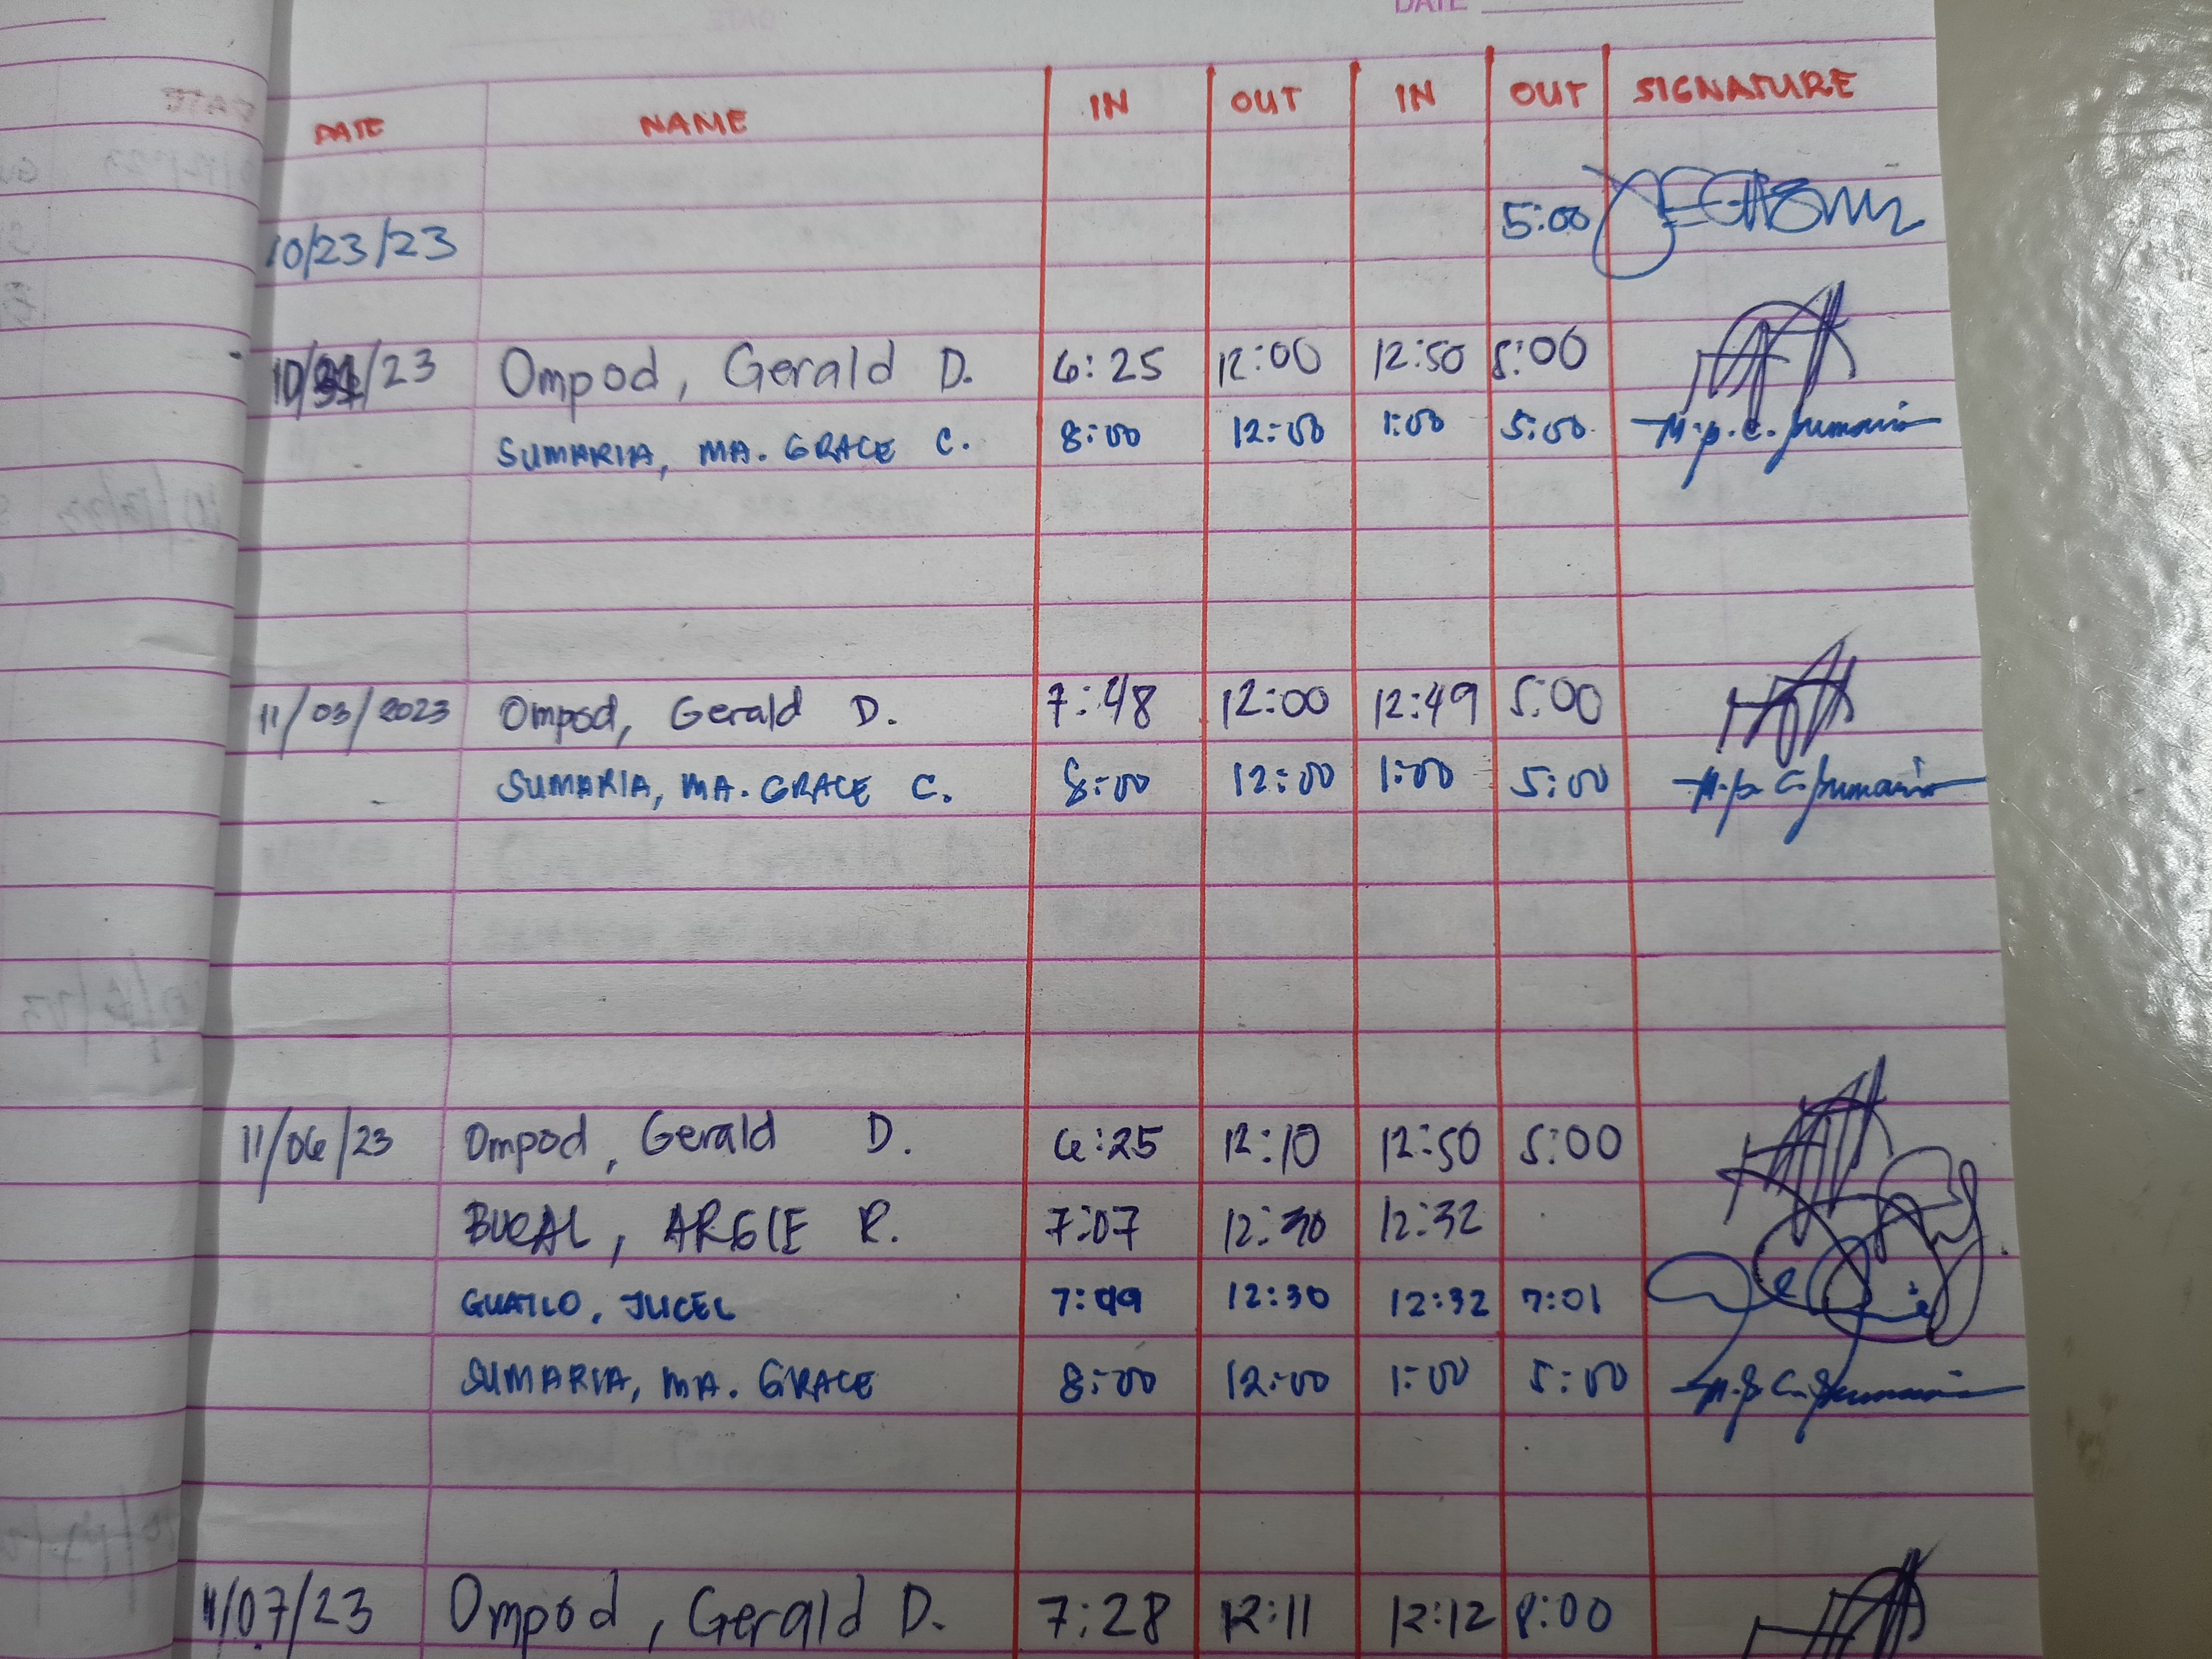 DATE
DATE NAME IN OUT IN OUT SIGNATURE
10/23/23 5:00
10/31/23 Ompod, Gerald D. 6:25 12:00 12:50 5:00
SUMARIA, MA. GRACE C. 8:00 12:00 1:00 5:00
11/03/2023 Ompod, Gerald D. 7:48 12:00 12:49 5:00
SUMARIA, MA. GRACE C. 8:00 12:00 1:00 5:00
11/06/23 Ompod, Gerald D. 6:25 12:10 12:50 5:00
BUCAL, ARGIE R. 7:07 12:30 12:32
GUATLO, JUCEL 7:49 12:30 12:32 7:01
SUMARIA, MA. GRACE 8:00 12:00 1:00 5:00
11/07/23 Ompod, Gerald D. 7:28 12:11 12:12 8:00